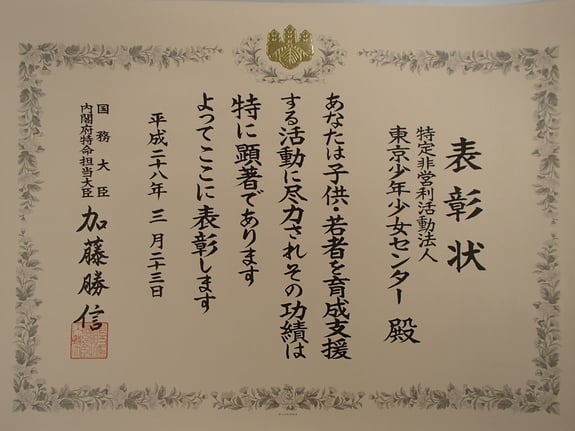 表彰状
特定非営利活動法人
東京少年少女センター 殿
あなたは子供・若者を育成支援
する活動に尽力されその功績は
特に顕著であります
よってここに表彰します
平成二十八年 三 月二十三日
国務大臣
内閣府特命担当大臣
加藤勝信